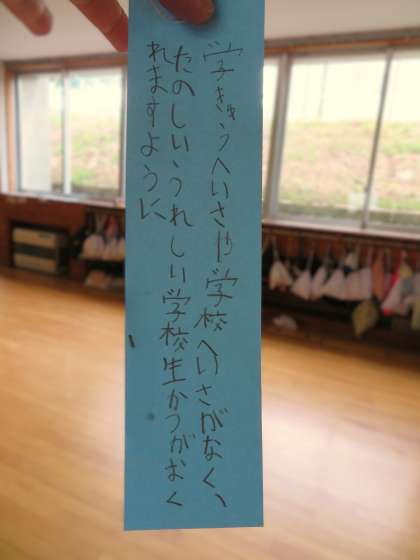 学きゅうへいさや学校へいさがなく、
たのしいうれしい学校生かつがおく
れますように